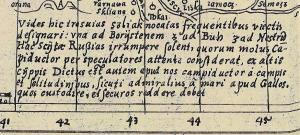 Varna us
Ilskane
iarnow
Somosc
Vides hic tres uias soli ak noatas frequentibus viectis
designari: vna ad Boristenem z ad Buh 3 ad Nestrū
Hac Scytæ Russias irrumpere solent, quorum motus Ca
piductor per speculatores attente considerat, ex altis
cyppis Dictus est autem apud nos campiductor a campis
et solitudinibus, sicuti admiralius a mari apud Gallos,
quos custodire, et securos raddere dobet
41 42 43 44 45